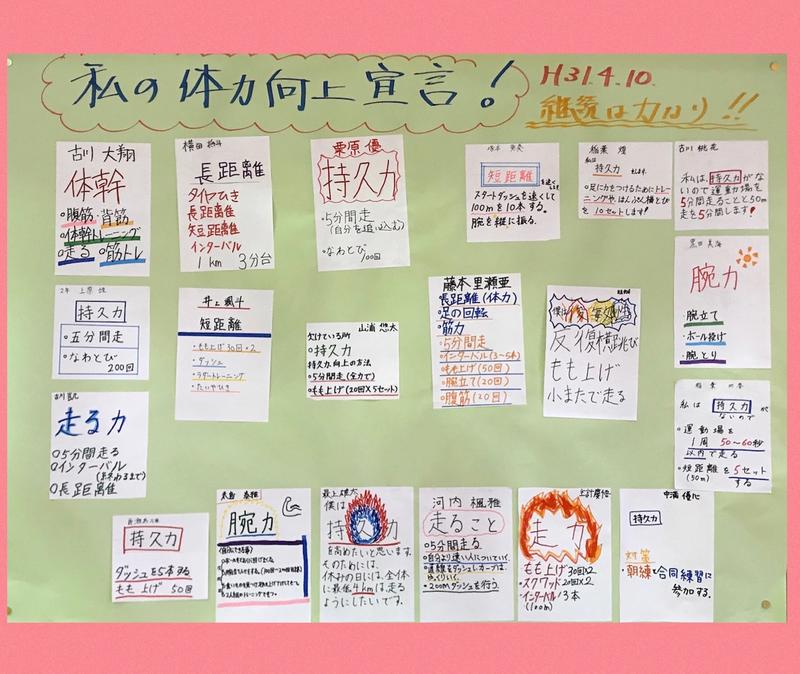 私の体力向上宣言！
H31.4.10.
継続は力なり!!
古川 大翔
体幹
○腹筋・背筋
○体幹トレーニング
○走る ○筋トレ
長距離
タイヤひき
長距離
短距離
インターバル
1km 3分台
栗原 優
持久力
・5分間走
(自分を追い込む)
・なわとび
100回
短距離
スタートダッシュを速くして
100mを10本する。
腕を縦に振る。
私は
持久力
○足に力をつけるためにトレー
ニングや
を10セットします!
古川 桃花
私は、持久力がな
いので運動場を
5分間走ることと50m
走を5分間します!
腕力
・腕立て
・ボール投げ
・腕とり
2年 上原
持久力
○五分間走
○なわとび
200回
井上 颯斗
短距離
・もも上げ30回×2
・ダッシュ
・ラダートレーニング
・たいやひき
山浦 悠太
欠けている所
・持久力
持久力、向上の方法
・5分間走(全力で)
・もも上げ(20回×5セット)
藤本 里瀬亜
長距離(体力)
足の回転
筋力
・5分間走
・インターバル(3~5本)
・もも上げ(50回)
・腕立て(20回)
・腹筋(20回)
反復横跳び
もも上げ
小またで走る
走る力
○5分間走る
○インターバル
○長距離
私は 持久力 が
ないので
・運動場を
1周 50~60秒
以内で走る
・短距離を5セット
(50m) する
持久力
ダッシュを5本する
もも上げ 50回
腕力
最上 雄大
僕は
持久力
を高めたいと思います。
そのためには、
休みの日には、全体
に最低4kmは走る
ようにしたいです。
河内 楓雅
走ること
○5分間走る
・自分より速い人についていく。
・直線をダッシュしカーブは
ゆっくりいく。
・200mダッシュを行う。
走力
もも上げ30回×2
・スクワッド20回×2
・インターバル3本
(100m)
中溝 優心
持久力
対策
・朝練や合同練習に
参加する。